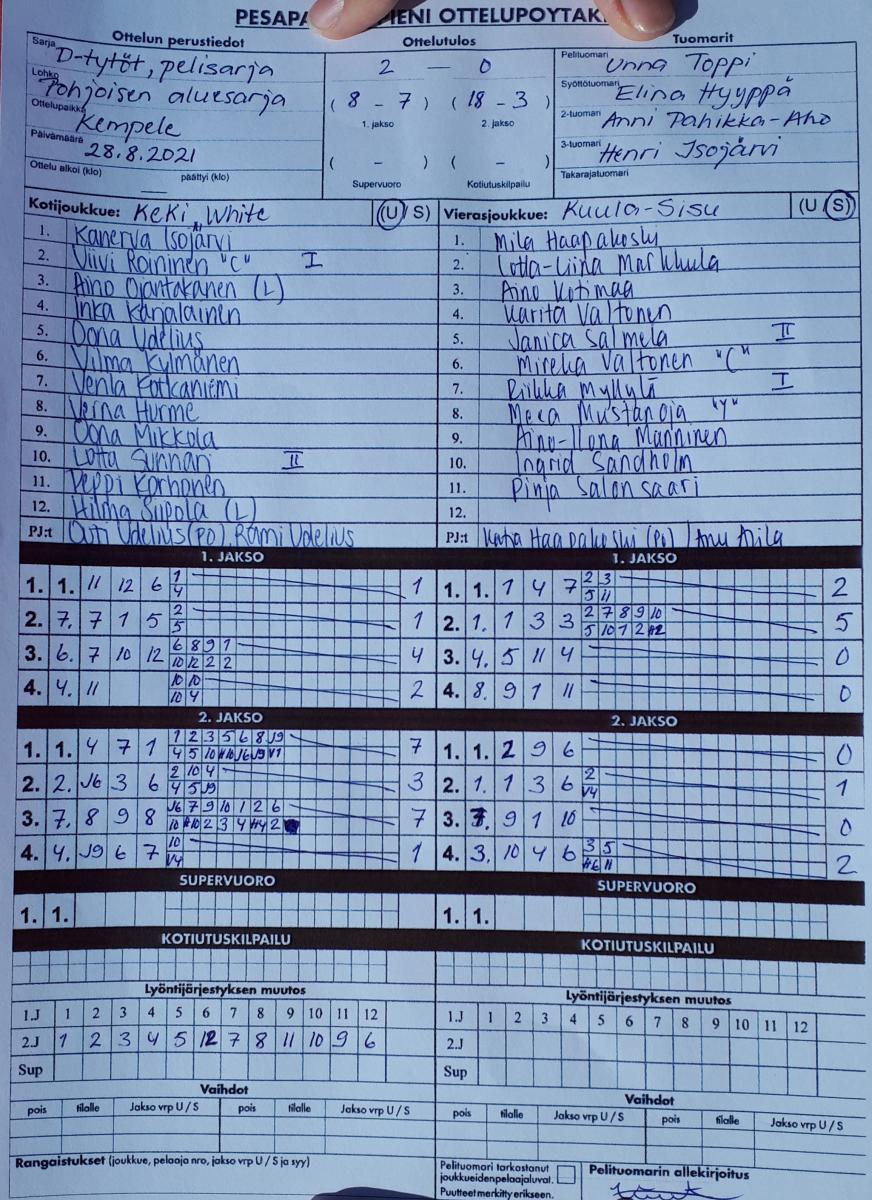 PESÄPA IENI OTTELUPÖYTÄK
Ottelun perustiedot
Sarja D-tytöt, pelisarja
Lohko Pohjoisen aluesarja
Ottelupaikka Kempele
Päivämäärä 28.8.2021
Ottelu alkoi (klo) — päättyi (klo)
Ottelutulos
2 — 0
( 8 - 7 ) ( 18 - 3 )
1. jakso 2. jakso
( - ) ( - )
Supervuoro Kotiutuskilpailu
Tuomarit
Pelituomari Unna Toppi
Syöttötuomari Elina Hyyppä
2-tuomari Anni Pahikka-Aho
3-tuomari Henri Isojärvi
Takarajatuomari
Kotijoukkue: KeKi White (U / S)
1. Kanerva Isojärvi
2. Viivi Roininen "C" I
3. Aino Ojantakanen (L)
4. Inka Karjalainen
5. Oona Udelius
6. Vilma Kylmänen
7. Venla Kotkaniemi
8. Verna Hurme
9. Oona Mikkola
10. Lotta Sunnari II
11. Peppi Korhonen
12. Hilma Siipola (L)
PJ:t Outi Udelius (PO), Rami Udelius
Vierasjoukkue: Kuula-Sisu (U / S)
1. Mila Haapakoski
2. Lotta-Liina Markkula
3. Aino Kotimaa
4. Karita Valtonen
5. Janica Salmela II
6. Mireka Valtonen "C"
7. Riikka Myllylä I
8. Meea Mustanoja "Y"
9. Aino-Ilona Manninen
10. Ingrid Sandholm
11. Pinja Salonsaari
12.
PJ:t Katja Haapakoski (PO) / Anu Aila
1. JAKSO
1. 1. 11 12 6 1 1
4
2. 7. 7 1 5 2 1
5
3. 6. 7 10 12 6 8 9 1 4
10 12 2 2
4. 4. 11 10 10 2
10 4
1. JAKSO
1. 1. 1 4 7 2 3 2
5 11
2. 1. 1 3 3 2 7 8 9 10 5
5 10 1 2 #2
3. 4. 5 11 4 0
4. 8. 9 1 11 0
2. JAKSO
1. 1. 4 7 1 1 2 3 5 6 8 J9 7
4 5 10 #10 J6 J9 V1
2. 2. J6 3 6 2 10 4 3
4 5 J9
3. 7. 8 9 8 J6 7 9 10 1 2 6 7
10 #10 2 3 4 #4 2
4. 4. J9 6 7 10 1
V4
2. JAKSO
1. 1. 2 9 6 0
2. 1. 1 3 6 2 1
V4
3. 7. 9 1 10 0
4. 3. 10 4 6 3 5 2
#6 11
SUPERVUORO
1. 1.
SUPERVUORO
1. 1.
KOTIUTUSKILPAILU
KOTIUTUSKILPAILU
Lyöntijärjestyksen muutos
1.J 1 2 3 4 5 6 7 8 9 10 11 12
2.J 1 2 3 4 5 12 7 8 11 10 9 6
Sup
Lyöntijärjestyksen muutos
1.J 1 2 3 4 5 6 7 8 9 10 11 12
2.J
Sup
Vaihdot
pois tilalle Jakso vrp U / S pois tilalle Jakso vrp U / S
Vaihdot
pois tilalle Jakso vrp U / S pois tilalle Jakso vrp U / S
Rangaistukset (joukkue, pelaaja nro, jakso vrp U / S ja syy)
Pelituomari tarkastanut
joukkueidenpelaajaluvat.
Puutteet merkitty erikseen.
Pelituomarin allekirjoitus